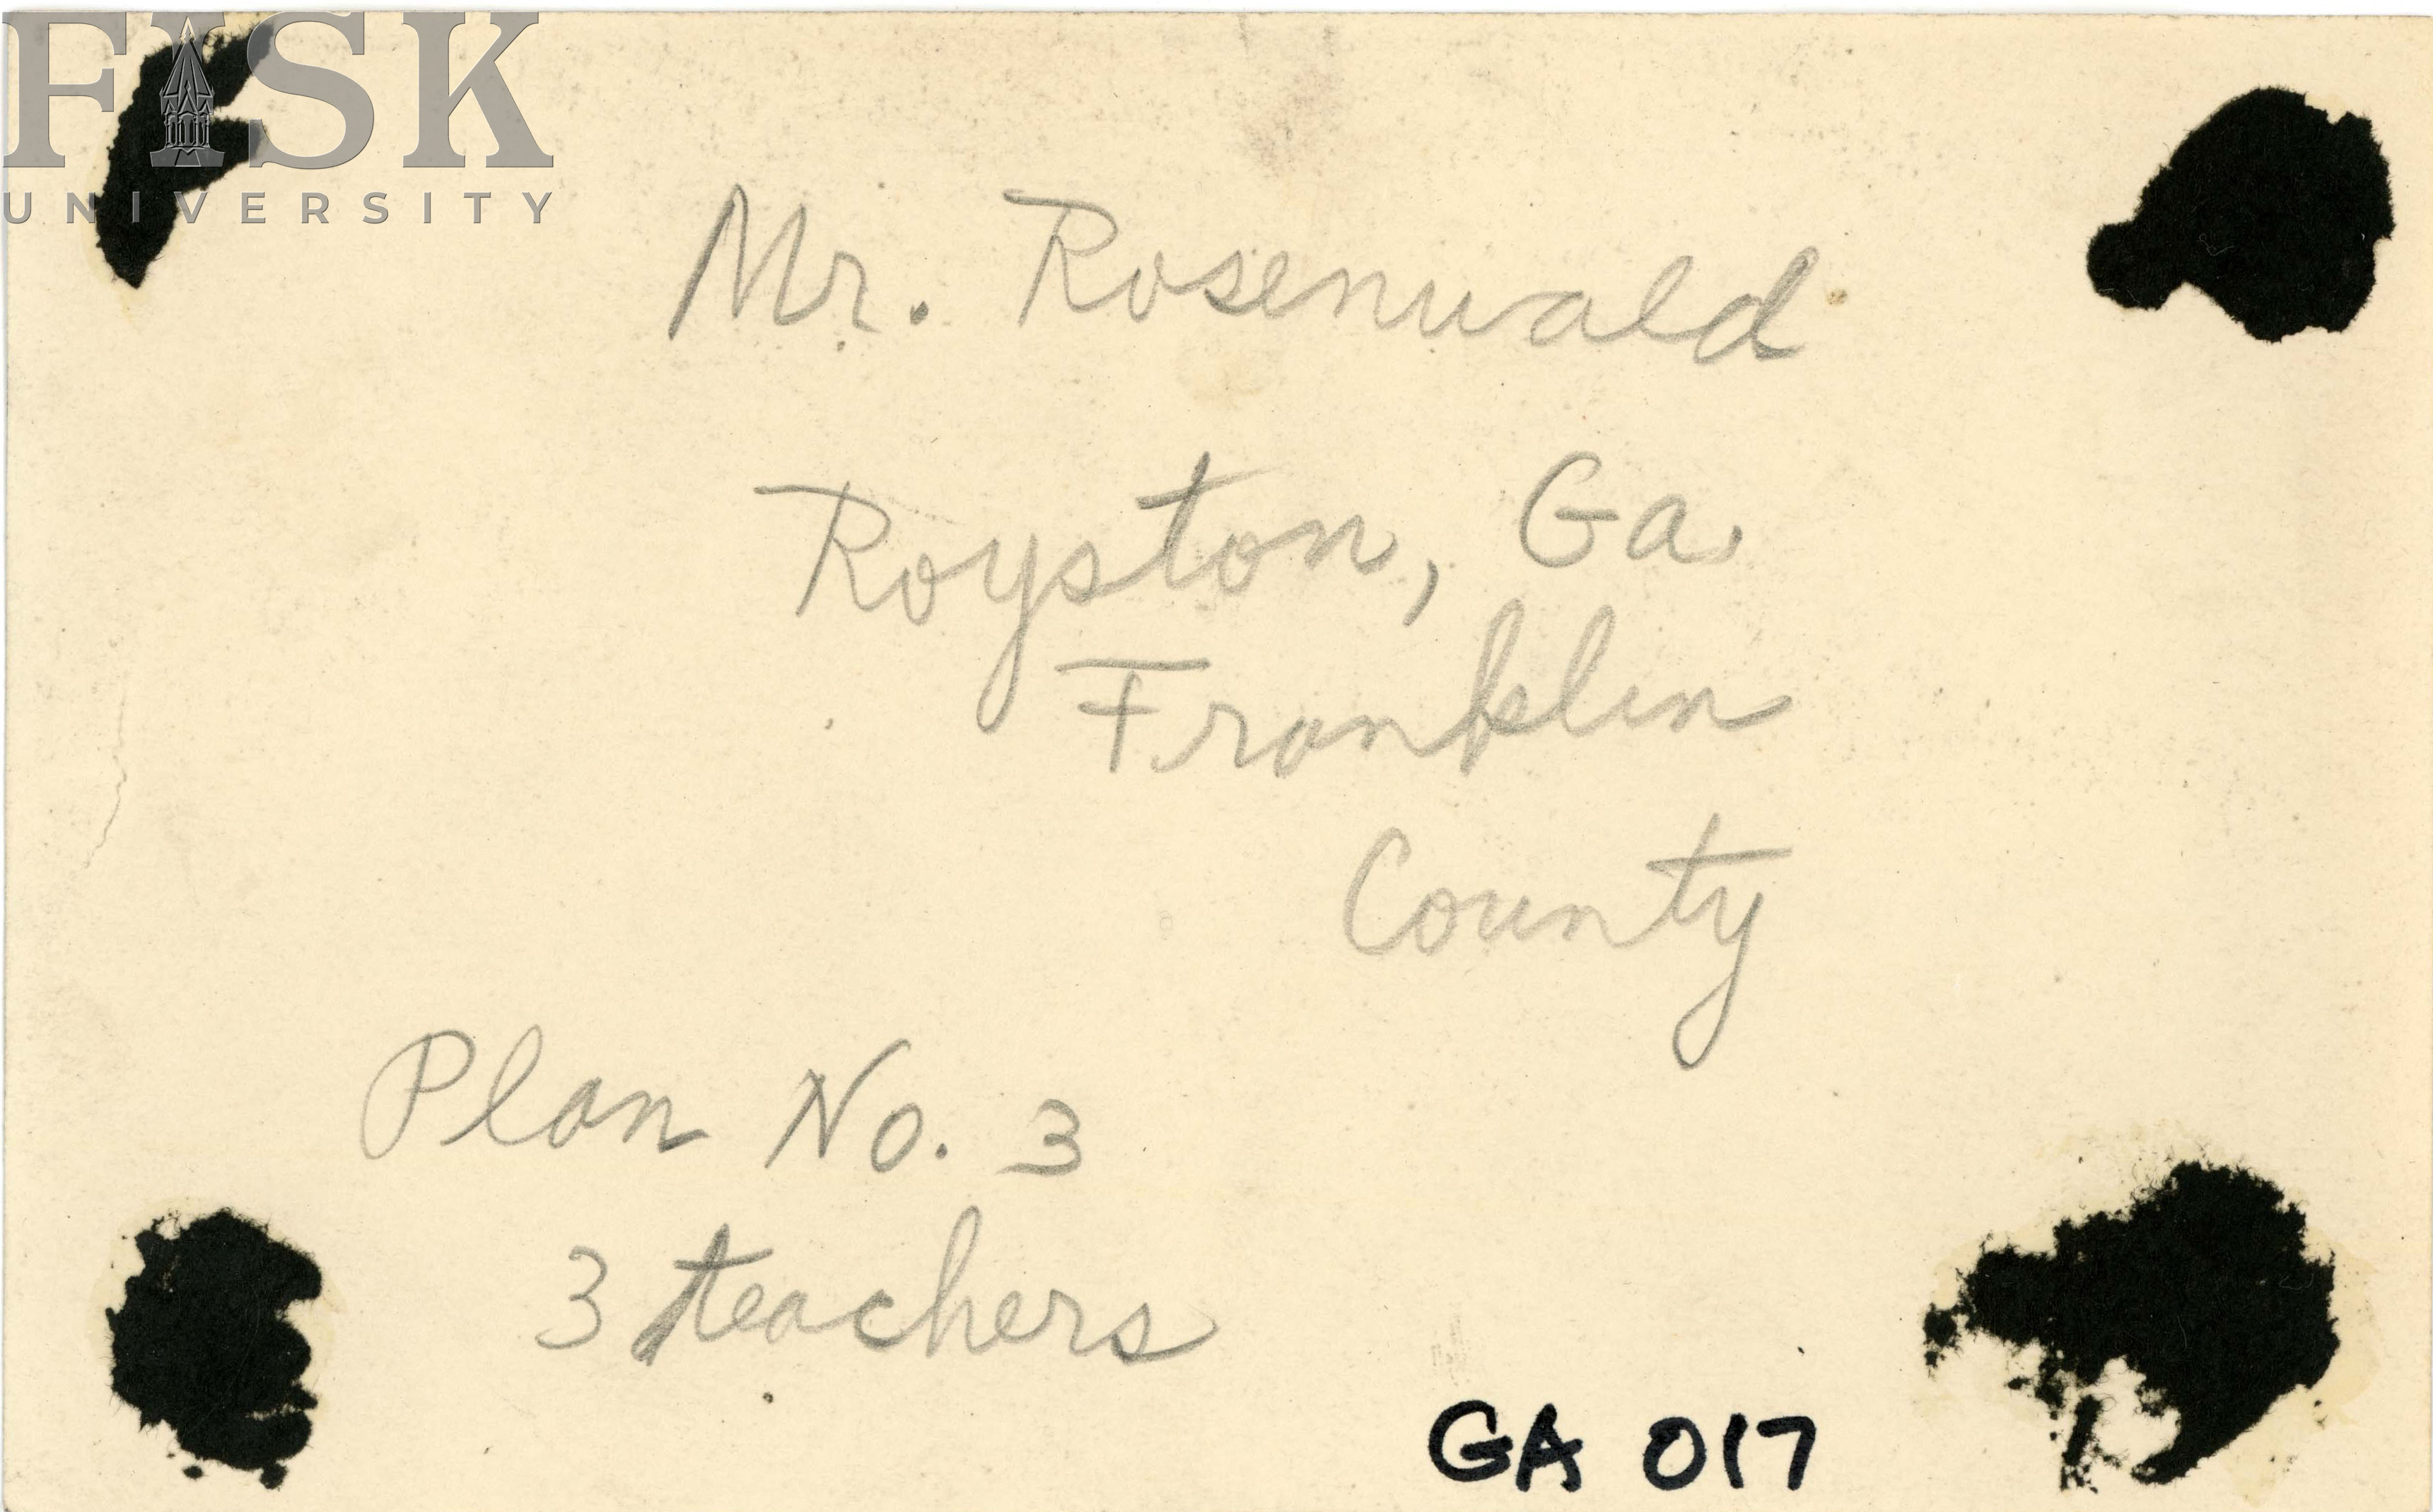 FISK
UNIVERSITY
Mr. Rosenwald
Royston, Ga.
Franklin
County
Plan No. 3
3 teachers
GA 017